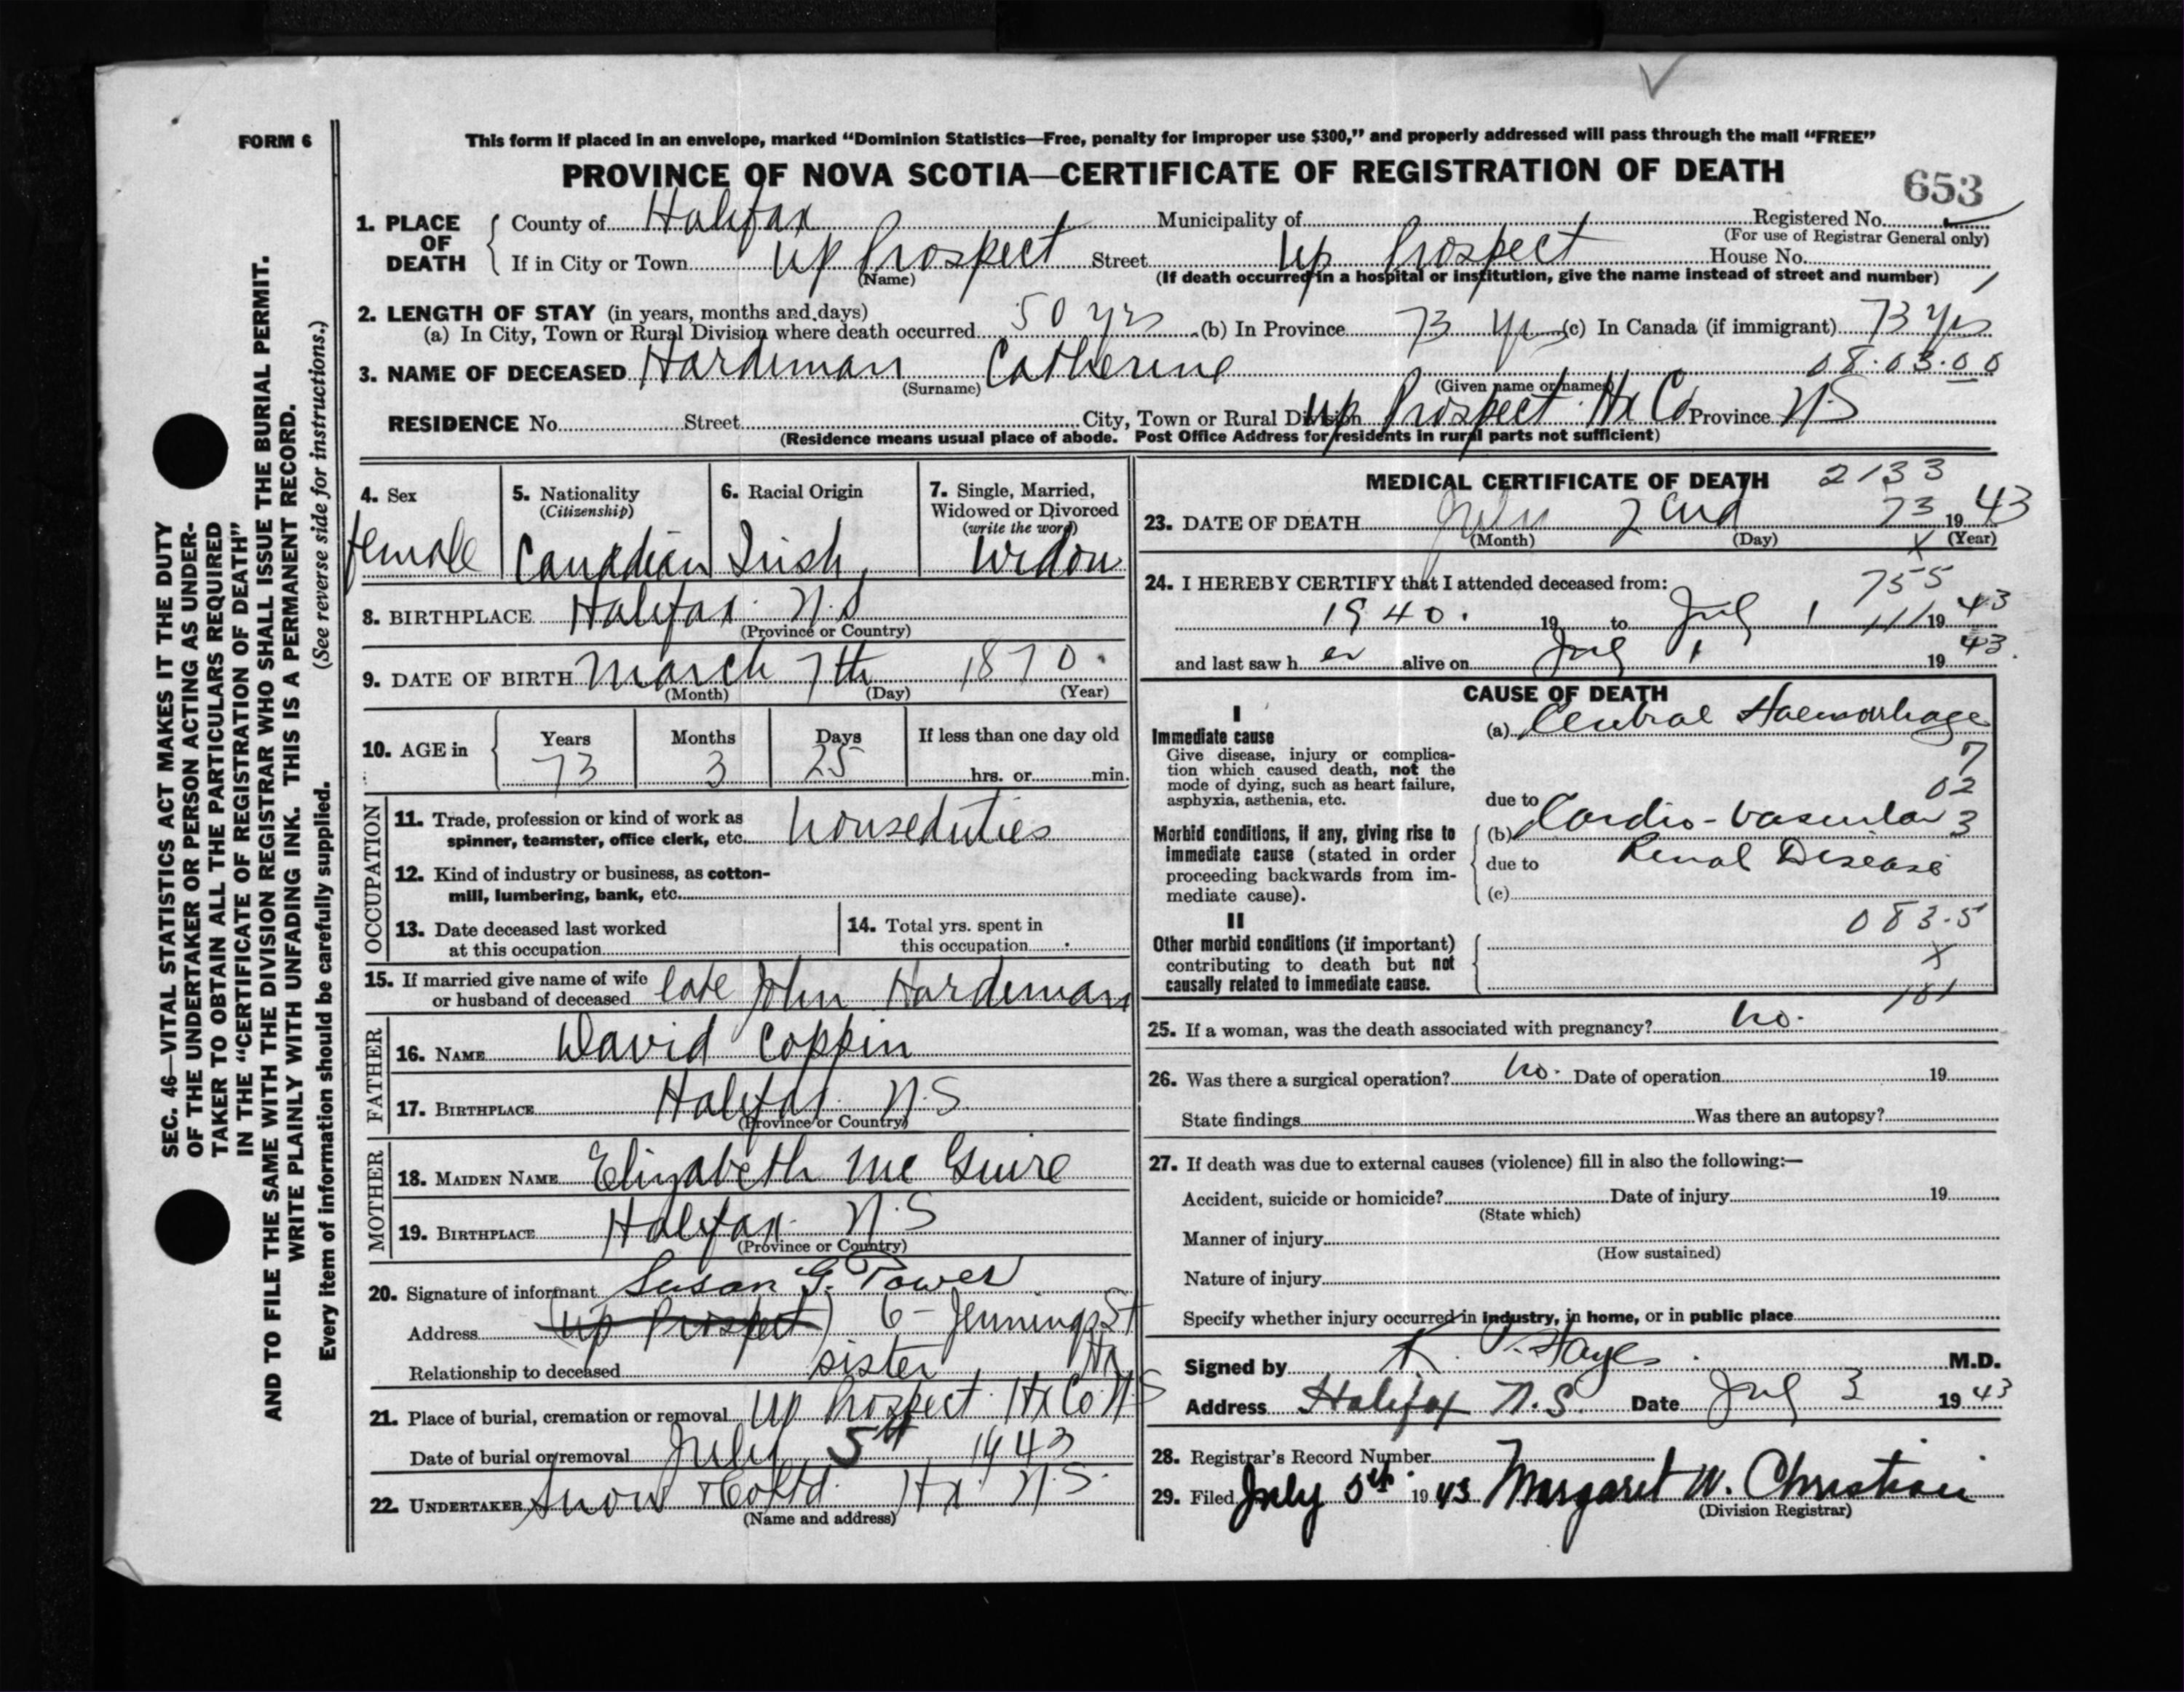 FORM 6
This form if placed in an envelope, marked “Dominion Statistics—Free, penalty for improper use $300,” and properly addressed will pass through the mail “FREE”
PROVINCE OF NOVA SCOTIA—CERTIFICATE OF REGISTRATION OF DEATH
653
1. PLACE OF DEATH County of Halifax Municipality of Registered No.
(For use of Registrar General only)
If in City or Town Up Prospect Street Up Prospect House No.
(Name) (If death occurred in a hospital or institution, give the name instead of street and number)
2. LENGTH OF STAY (in years, months and days)
(a) In City, Town or Rural Division where death occurred 50 yrs (b) In Province 73 yrs (c) In Canada (if immigrant) 73 yrs
08.03.00
3. NAME OF DECEASED Hardiman Catherine
(Surname) (Given name or names)
RESIDENCE No. Street City, Town or Rural Division Up Prospect Hx Co Province N S
(Residence means usual place of abode. Post Office Address for residents in rural parts not sufficient)
4. Sex female
5. Nationality (Citizenship) Canadian
6. Racial Origin Irish
7. Single, Married, Widowed or Divorced (write the word) Widow
8. BIRTHPLACE Halifax N.S
(Province or Country)
9. DATE OF BIRTH March 7th 1870.
(Month) (Day) (Year)
10. AGE in Years 73 Months 3 Days 25 If less than one day old hrs. or min.
OCCUPATION
11. Trade, profession or kind of work as spinner, teamster, office clerk, etc. houseduties
12. Kind of industry or business, as cotton-mill, lumbering, bank, etc.
13. Date deceased last worked at this occupation
14. Total yrs. spent in this occupation
15. If married give name of wife or husband of deceased late John Hardiman
FATHER
16. NAME David Coppin
17. BIRTHPLACE Halifax N.S.
(Province or Country)
MOTHER
18. MAIDEN NAME Elizabeth Mc Guire
19. BIRTHPLACE Halifax N.S
(Province or Country)
20. Signature of informant Susan G. Power
Address (Up Prospect) 6 - Jennings St
Hx
Relationship to deceased sister
21. Place of burial, cremation or removal Up Prospect Hx Co N S
Date of burial or removal July 5th 1943
22. UNDERTAKER Snow & Co Ltd. Hx N.S.
(Name and address)
MEDICAL CERTIFICATE OF DEATH 2133
23. DATE OF DEATH July 2nd 73 1943
(Month) (Day) X (Year)
24. I HEREBY CERTIFY that I attended deceased from: 755
1940. 19 to Jul 1 111 1943
and last saw her alive on Jul 1 1943.
CAUSE OF DEATH
I
Immediate cause
Give disease, injury or complication which caused death, not the mode of dying, such as heart failure, asphyxia, asthenia, etc.
(a) Cerebral Haemorrhage
7
02
3
due to
Morbid conditions, if any, giving rise to immediate cause (stated in order proceeding backwards from immediate cause).
(b) Cardio-vascular
due to Renal Disease
(c)
II
Other morbid conditions (if important) contributing to death but not causally related to immediate cause.
083.5
X
101
25. If a woman, was the death associated with pregnancy? no.
26. Was there a surgical operation? no. Date of operation 19
State findings Was there an autopsy?
27. If death was due to external causes (violence) fill in also the following:—
Accident, suicide or homicide? Date of injury 19
(State which)
Manner of injury
(How sustained)
Nature of injury
Specify whether injury occurred in industry, in home, or in public place
Signed by K. P. Hayes. M.D.
Address Halifax N.S. Date Jul 3 1943
28. Registrar's Record Number
29. Filed July 5th 1943 Margaret W. Christian
(Division Registrar)
SEC. 46—VITAL STATISTICS ACT MAKES IT THE DUTY
OF THE UNDERTAKER OR PERSON ACTING AS UNDER-
TAKER TO OBTAIN ALL THE PARTICULARS REQUIRED
IN THE “CERTIFICATE OF REGISTRATION OF DEATH”
AND TO FILE THE SAME WITH THE DIVISION REGISTRAR WHO SHALL ISSUE THE BURIAL PERMIT.
WRITE PLAINLY WITH UNFADING INK. THIS IS A PERMANENT RECORD.
Every item of information should be carefully supplied. (See reverse side for instructions.)